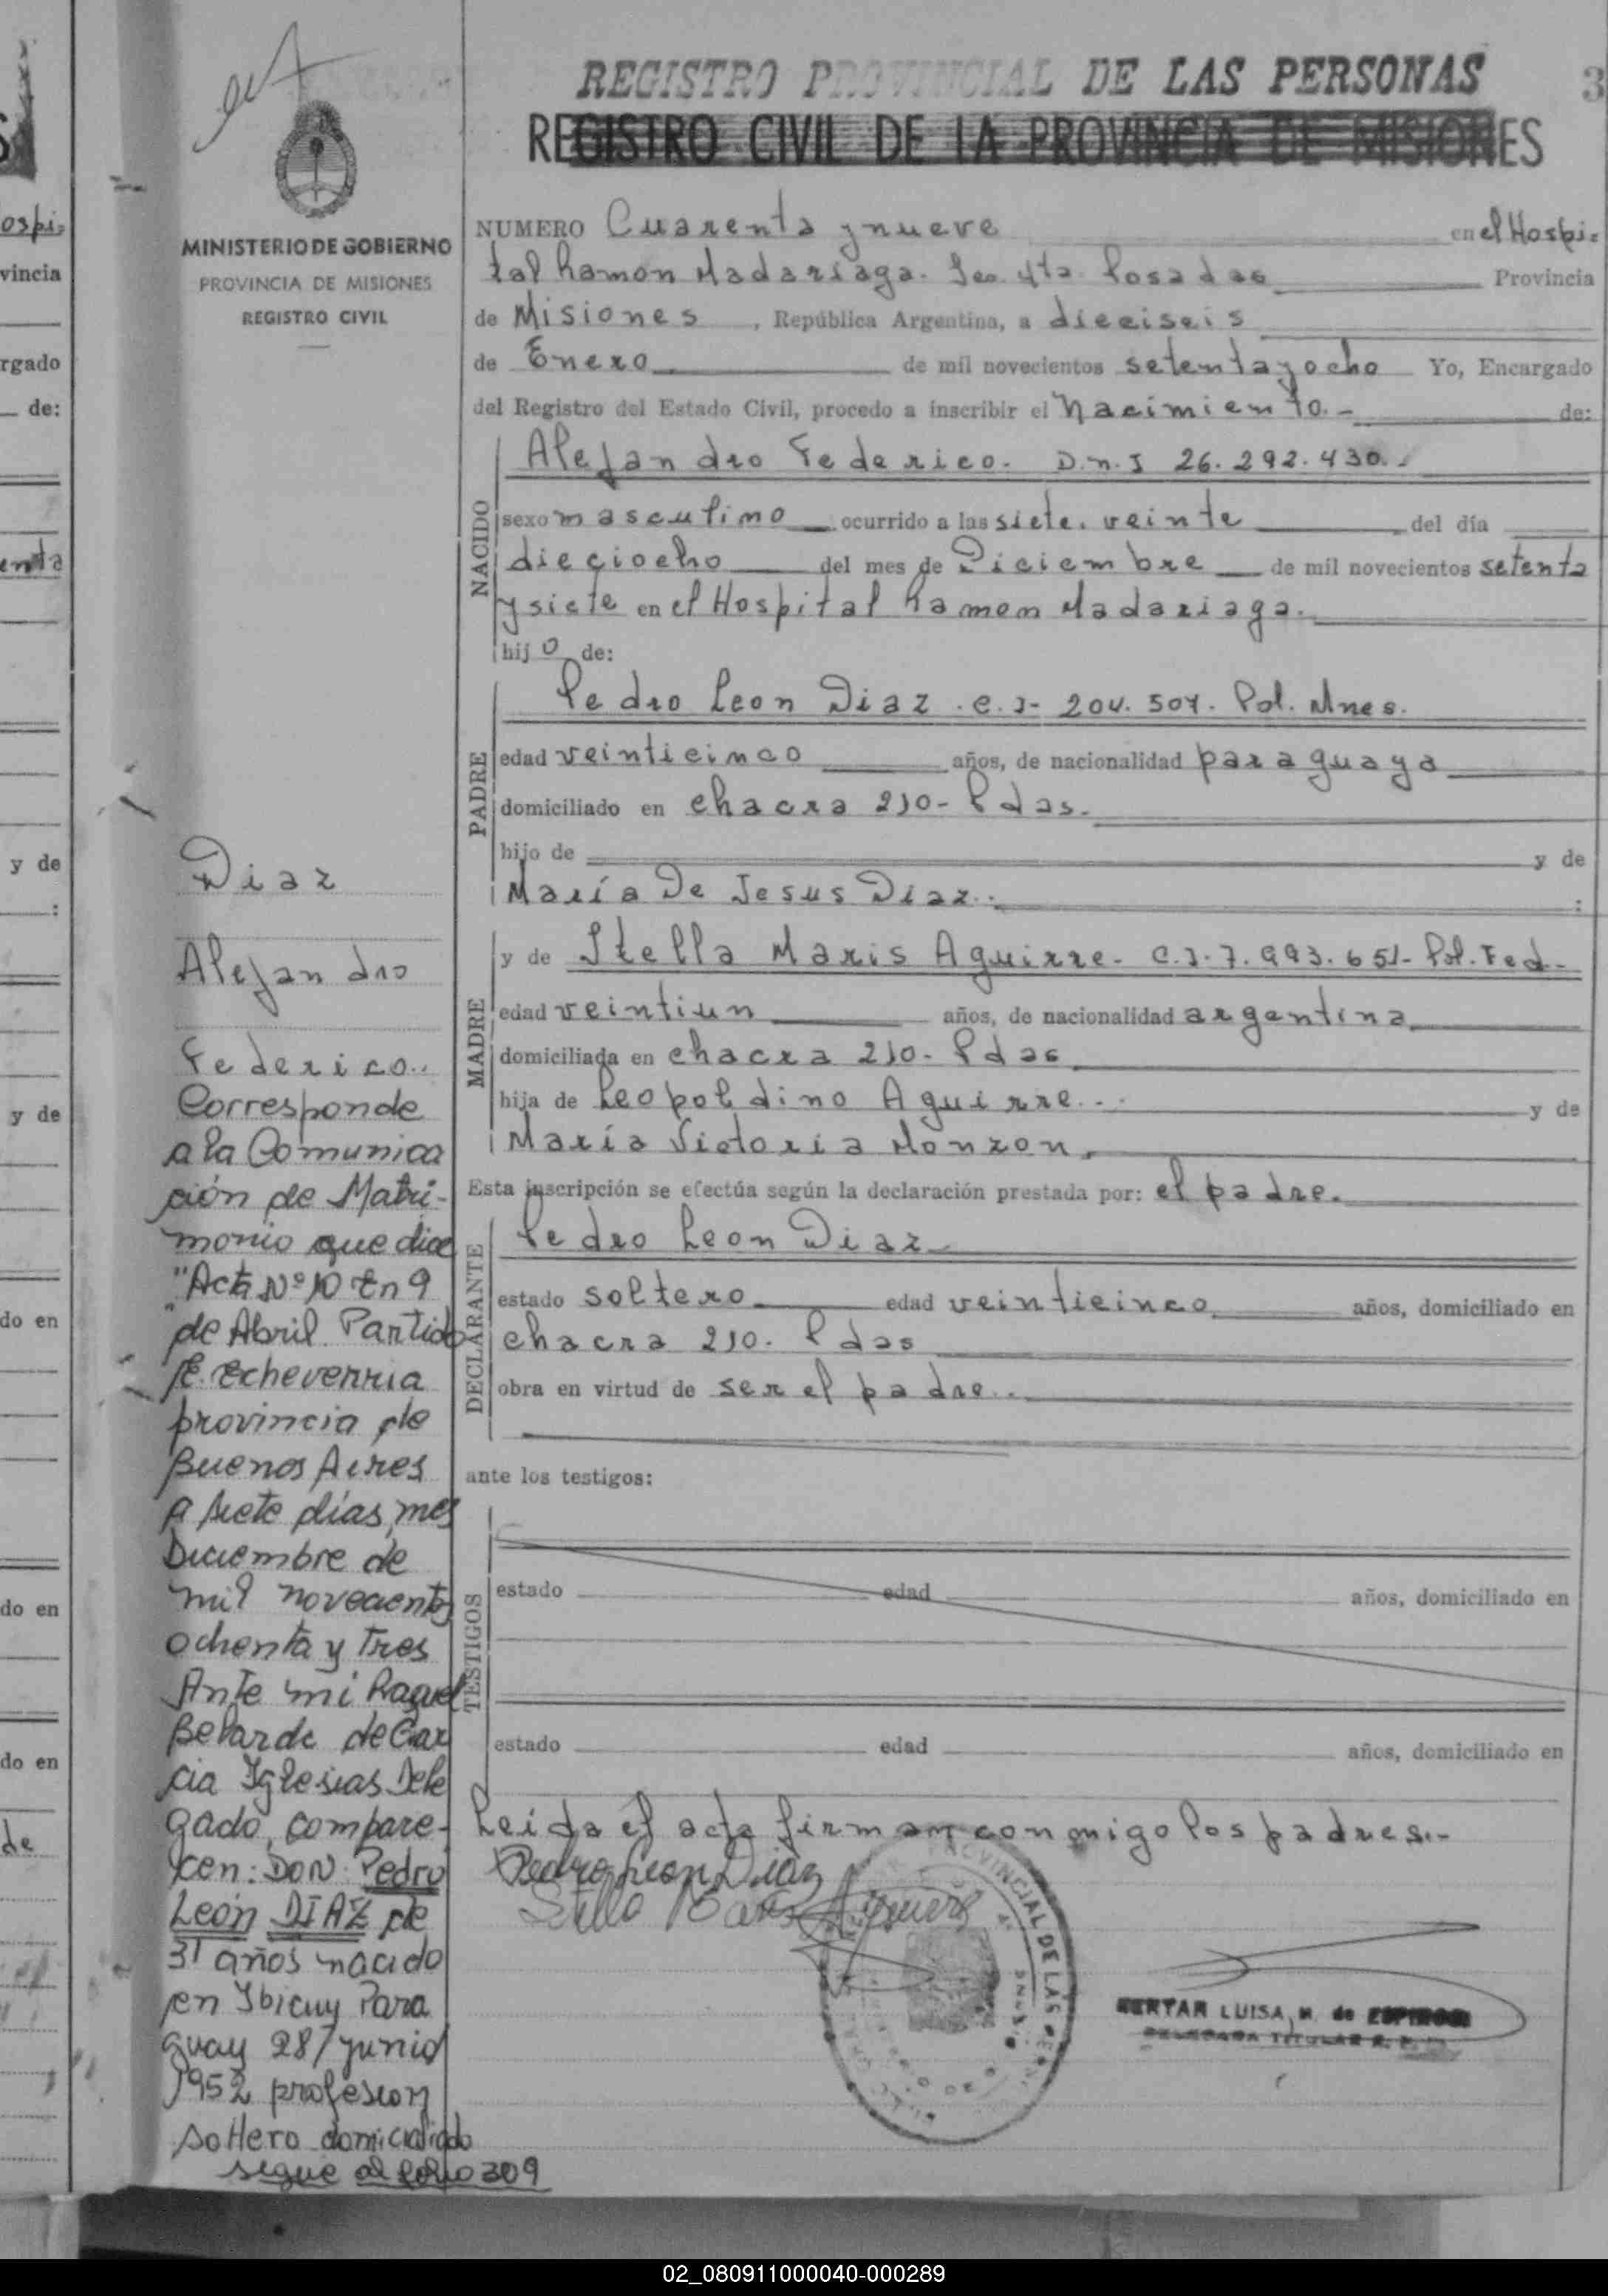 REGISTRO PROVINCIAL DE LAS PERSONAS
REGISTRO CIVIL DE LA PROVINCIA DE MISIONES
MINISTERIO DE GOBIERNO
PROVINCIA DE MISIONES
REGISTRO CIVIL
NUMERO Cuarenta y nueve en el Hospi=
tal Ramon Madariaga. Sec. 4ta. Posadas Provincia
de Misiones , República Argentina, a dieciseis
de Enero de mil novecientos setenta y ocho Yo, Encargado
del Registro del Estado Civil, procedo a inscribir el Nacimiento.- de:
NACIDO
Alejandro Federico. D.n.I 26.292.430.-
sexo masculino ocurrido a las siete. veinte del día
dieciocho del mes de Diciembre de mil novecientos setenta
y siete en el Hospital Ramon Madariaga.
hijo de:
PADRE
Pedro Leon Diaz . C.I- 204.507. Pol. Mnes.
edad veinticinco años, de nacionalidad paraguaya
domiciliado en chacra 210- Pdas.
hijo de y de
María De Jesus Diaz.. :
MADRE
y de Stella Maris Aguirre. C.I.7.993.651- Pol. Fed.
edad veintiun años, de nacionalidad argentina
domiciliada en chacra 210- Pdas
hija de Leopoldino Aguirre... y de
María Victoria Monzon.
Esta inscripción se efectúa según la declaración prestada por: el padre.
DECLARANTE
Pedro Leon Diaz
estado soltero edad veinticinco años, domiciliado en
chacra 210. Pdas
obra en virtud de ser el padre..
ante los testigos:
TESTIGOS
estado edad años, domiciliado en
estado edad años, domiciliado en
Leida el acta firman conmigo los padres.-
Pedro Leon Diaz
Stella Maris Aguirre
PROVINCIAL DE LAS
LUISA M. de
Diaz
Alejandro
Federico..
Corresponde
a la Comunica
ción de Matri-
monio que dice
"Acta Nº 10 En 9
de Abril Partido
E. Echeverria
provincia de
Buenos Aires
a siete días, mes
Diciembre de
mil novecientos
ochenta y Tres
Ante mi Raquel
Belarde de Gar
cia Iglesias Dele
gado, compare-
cen: DON Pedro
León DIAZ de
31 años nacido
en Ibicuy Para
guay 28/junio/
1952 profesion
soltero domiciliado
segue al folio 309
ospi=
vincia
rgado
de:
enta
y de
:
y de
do en
do en
do en
de
02_080911000040-000289